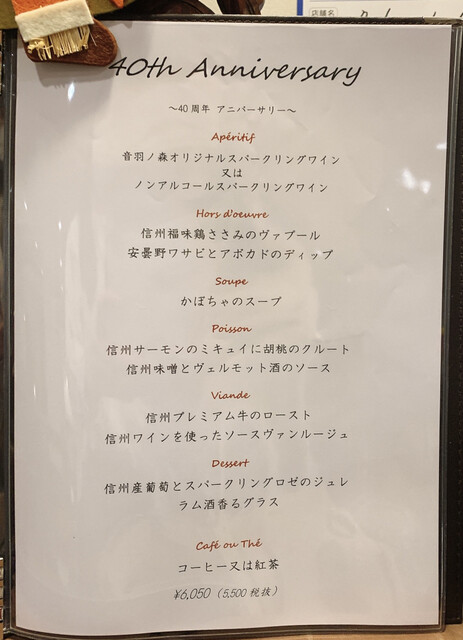 店舗名
40th Anniversary
～40周年 アニバーサリー～
Apéritif
音羽ノ森オリジナルスパークリングワイン
又は
ノンアルコールスパークリングワイン
Hors d'oeuvre
信州福味鶏ささみのヴァプール
安曇野ワサビとアボカドのディップ
Soupe
かぼちゃのスープ
Poisson
信州サーモンのミキュイに胡桃のクルート
信州味噌とヴェルモット酒のソース
Viande
信州プレミアム牛のロースト
信州ワインを使ったソースヴァンルージュ
Dessert
信州産葡萄とスパークリングロゼのジュレ
ラム酒香るグラス
Café ou Thé
コーヒー又は紅茶
¥6,050 (5,500 税抜)